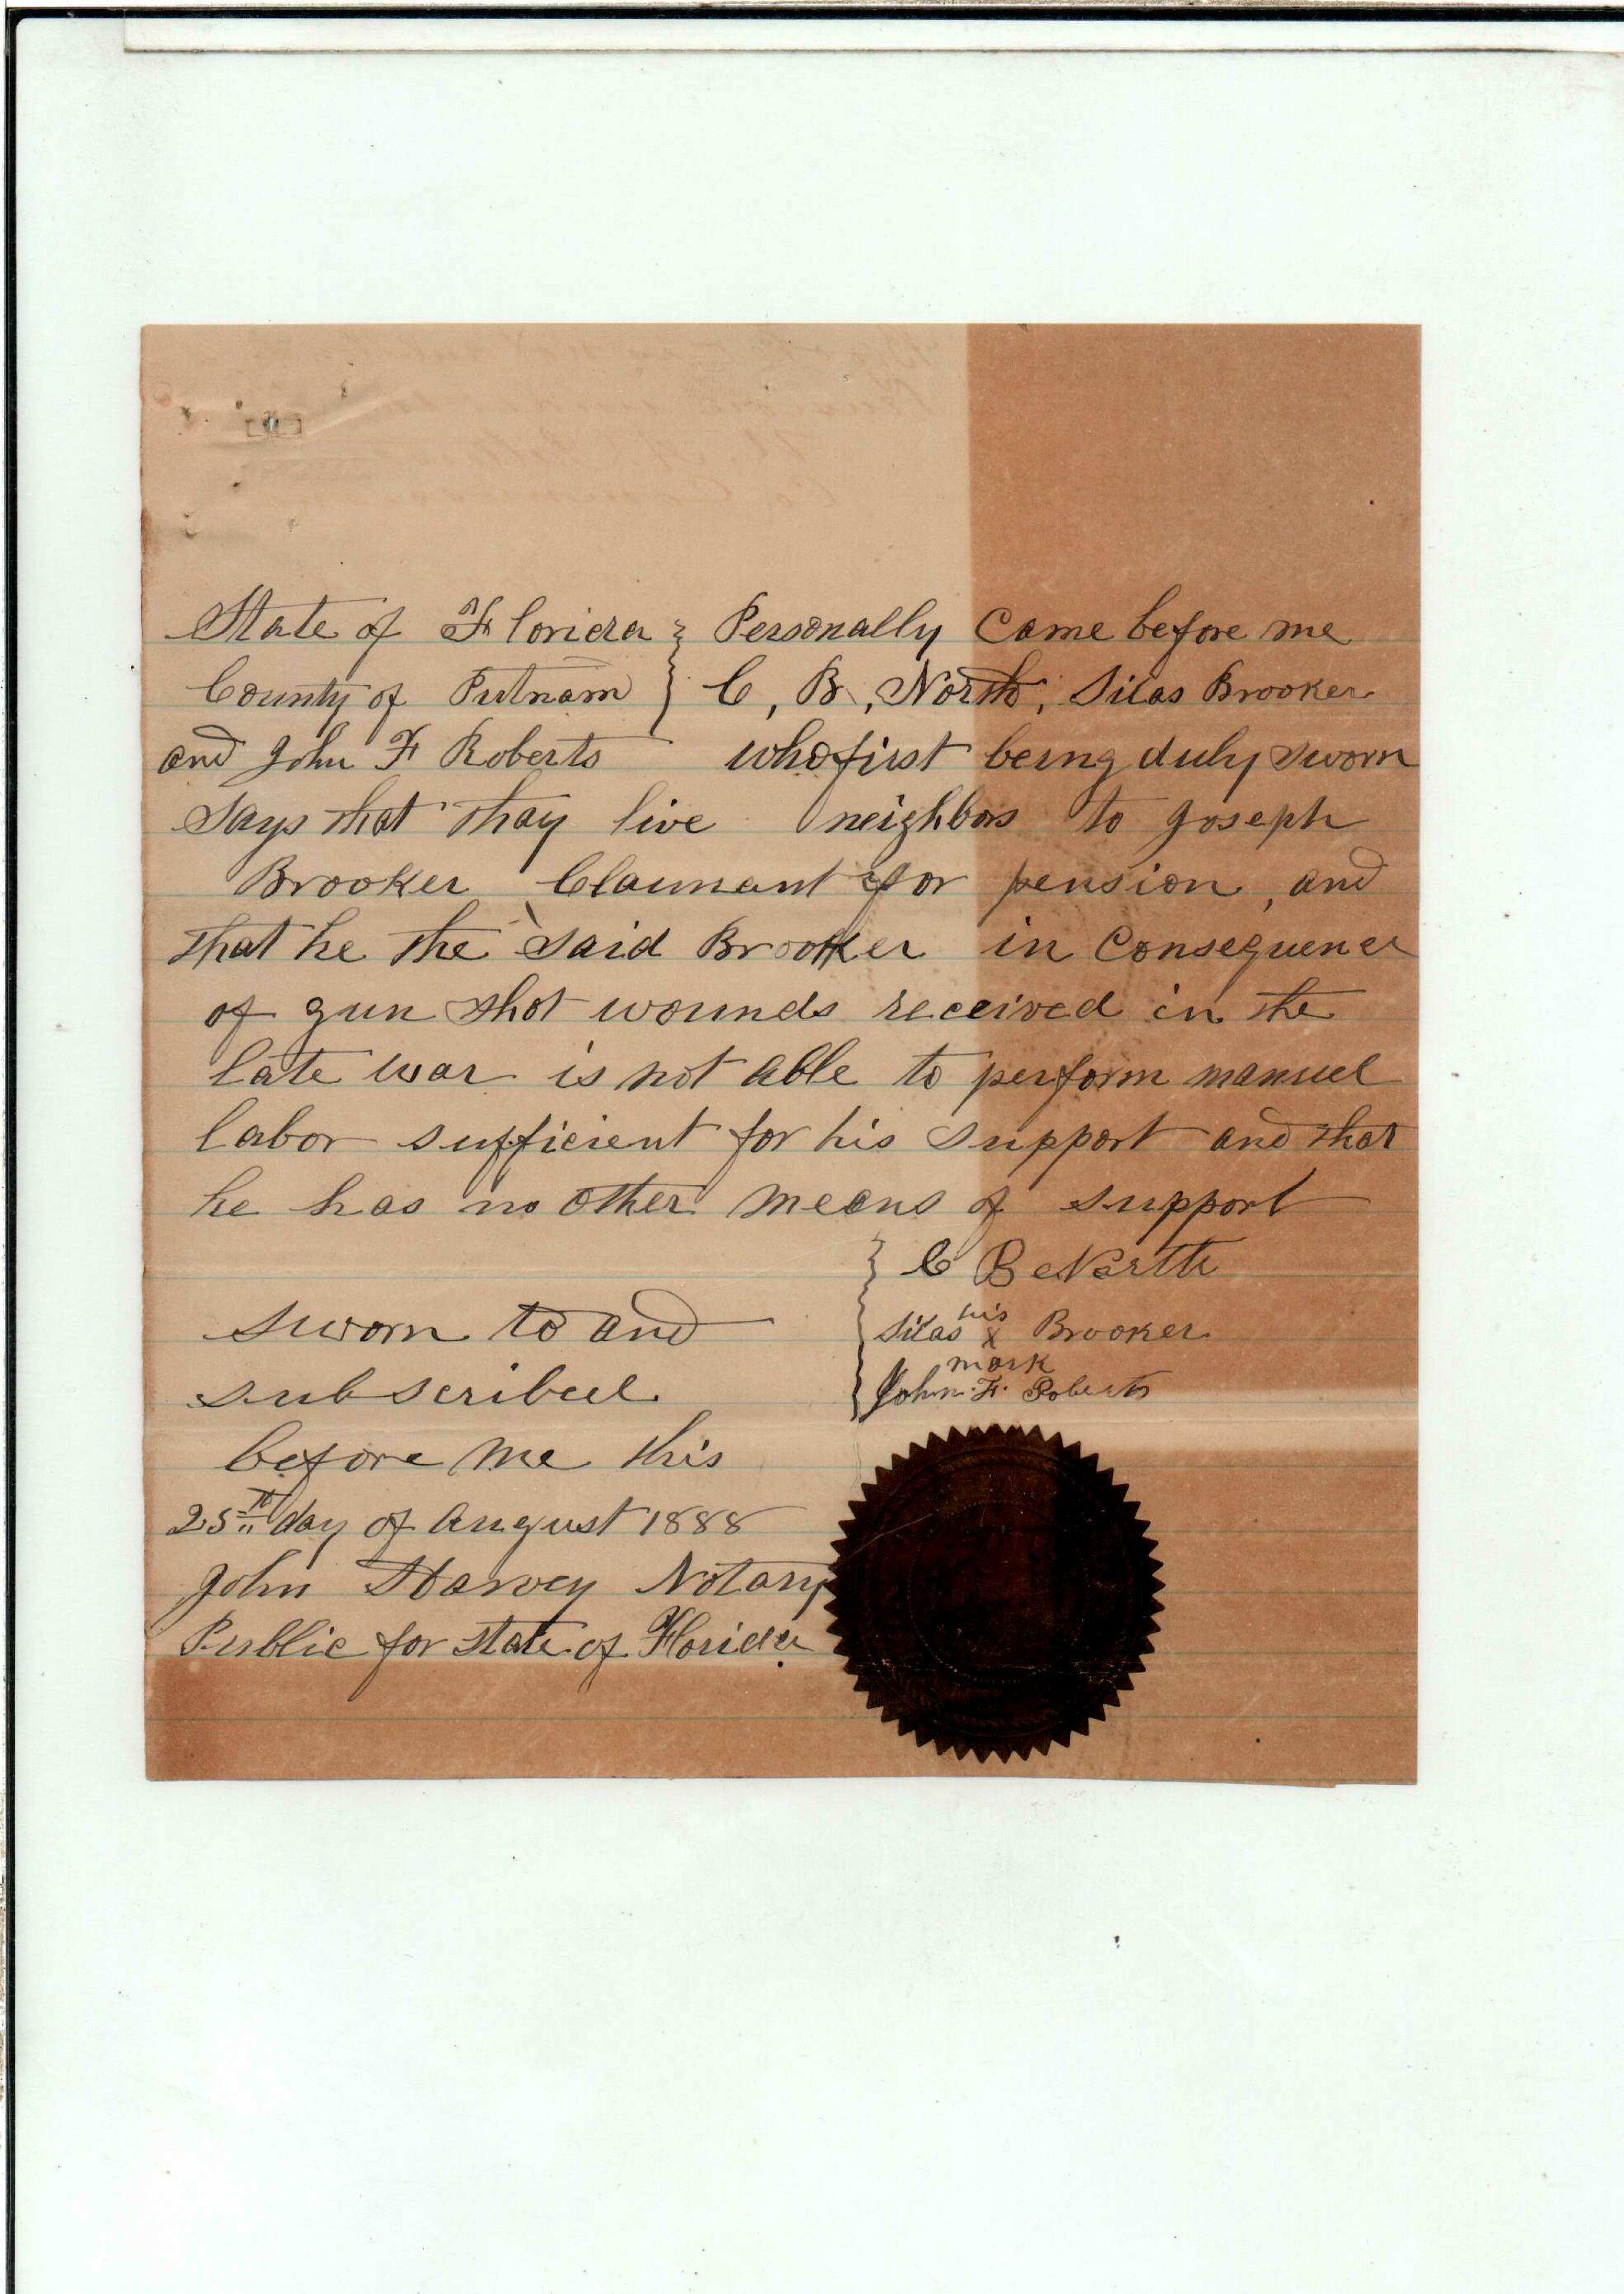 State of Florida } Personally Came before me
County of Putnam } C, B, North, Silas Brooker
and John F Roberts who first being duly sworn
says that thay live neighbors to Joseph
Brooker Claimant for pension, and
that he the said Brooker in Consequence
of gun shot wounds received in the
late war is not able to perform manuel
labor sufficient for his support and that
he has no other means of support
C B North
his
Silas x Brooker
mark
John. F. Roberts
sworn to and
subscribed
before me this
25th day of August 1888
John Harvey Notary
Public for state of Florida